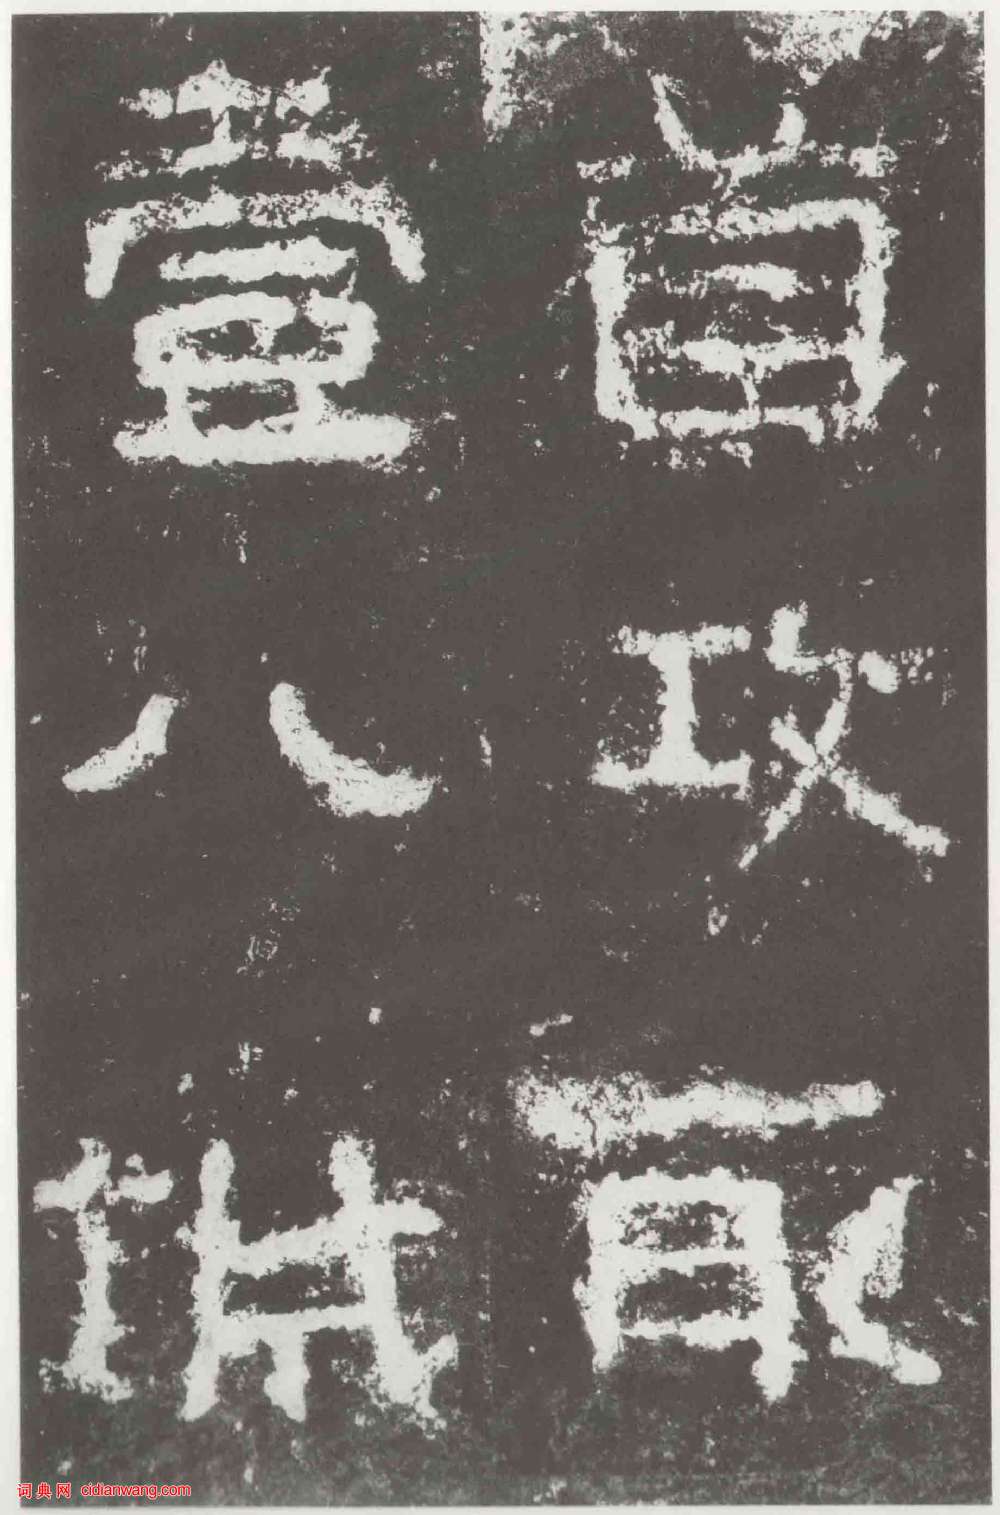 首攻取
壹八城
词典网 cidianwang.com